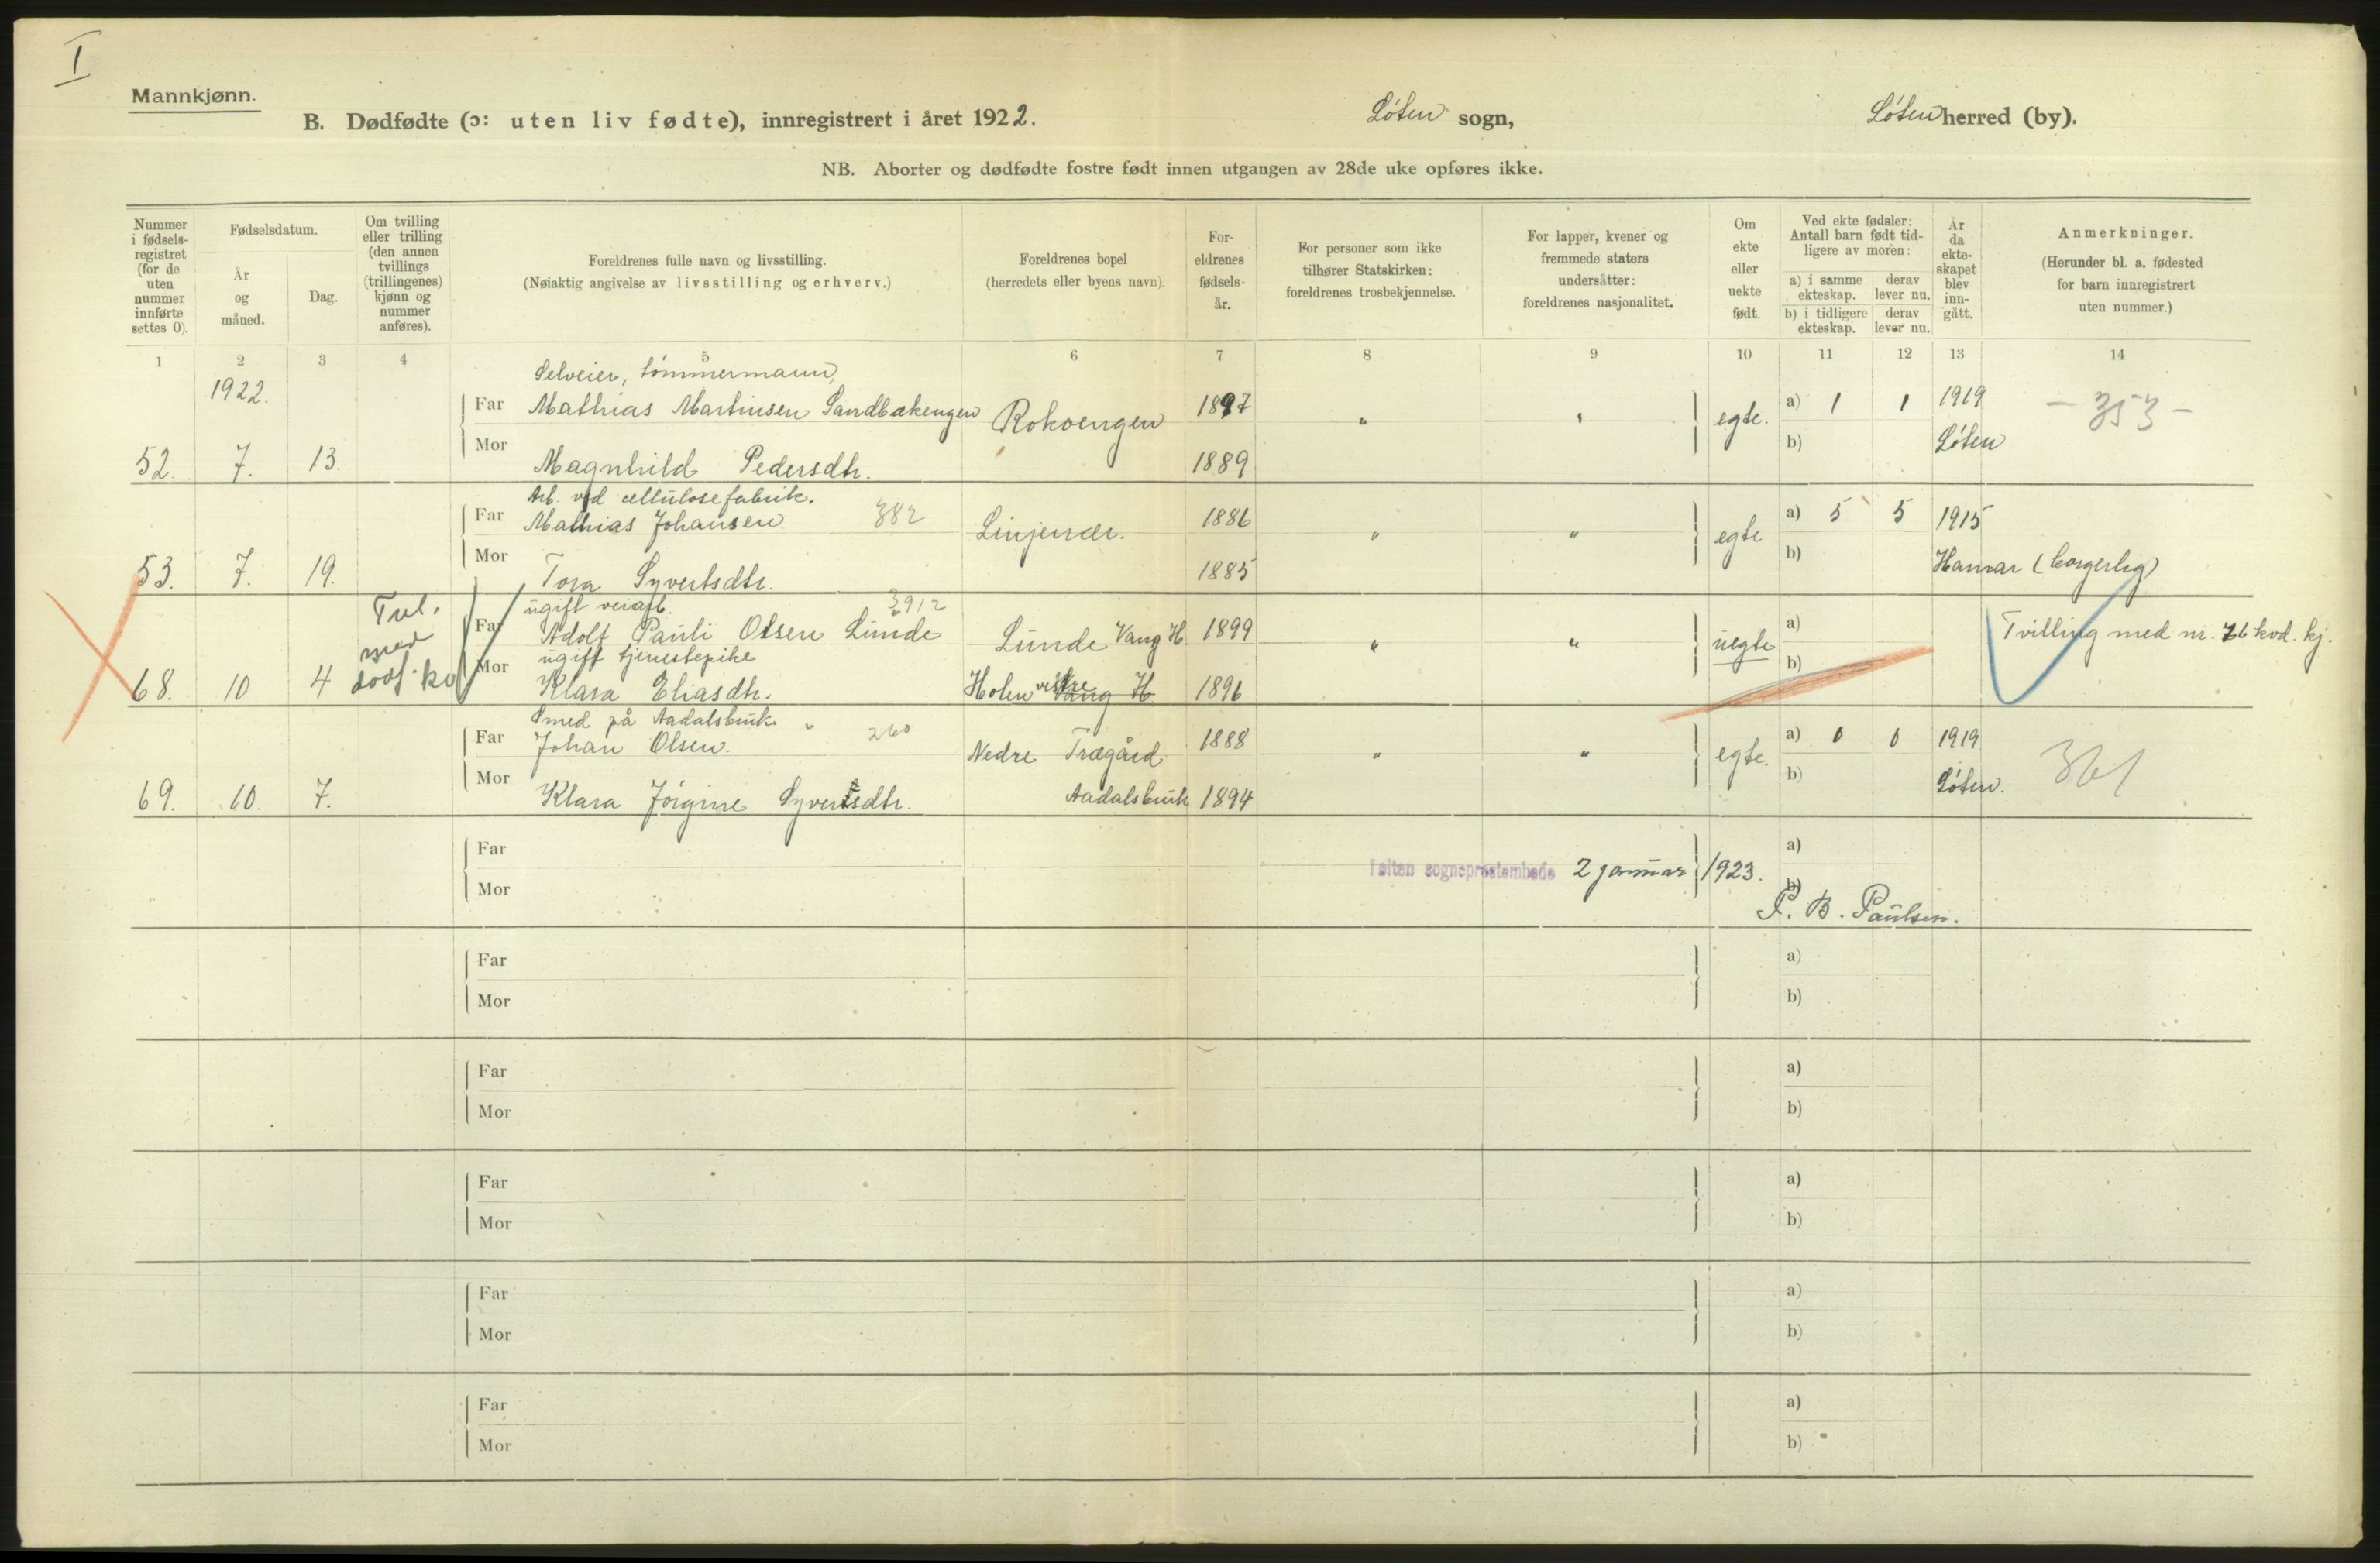 I
Mannkjønn.
B. Dødfødte (ɔ: uten liv fødte), innregistrert i året 1922.
Løten sogn,
Løten herred (by).
NB. Aborter og dødfødte fostre født innen utgangen av 28de uke opføres ikke.
Nummer
i fødsels-
registret
(for de
uten
nummer
innførte
settes 0).
Fødselsdatum.
År
og
måned.
Dag.
Om tvilling
eller trilling
(den annen
tvillings
(trillingenes)
kjønn og
nummer
anføres).
Foreldrenes fulle navn og livsstilling.
(Nøiaktig angivelse av livsstilling og erhverv.)
Foreldrenes bopel
(herredets eller byens navn).
For-
eldrenes
fødsels-
år.
For personer som ikke
tilhører Statskirken:
foreldrenes trosbekjennelse.
For lapper, kvener og
fremmede staters
undersåtter:
foreldrenes nasjonalitet.
Om
ekte
eller
uekte
født.
Ved ekte fødsler:
Antall barn født tid-
ligere av moren:
a) i samme
ekteskap.
derav
lever nu.
b) i tidligere
ekteskap.
derav
lever nu.
År
da
ekte-
skapet
blev
inn-
gått.
Anmerkninger.
(Herunder bl. a. fødested
for barn innregistrert
uten nummer.)
1 2 3 4 5 6 7 8 9 10 11 12 13 14
1922.
Selveier, tømmermann,
Far Mathias Martinsen Sandbækengen Rokoengen 1897 " " egte. a) 1 1 1919 - 353 -
Mor b) Løten
52. 7. 13. Magnhild Pedersdtr. 1889
Arb. ved cellulosefabrik.
Far Mathias Johansen 382 Linjender. 1886 " " egte a) 5 5 1915
Mor b) Hamar (borgerlig)
53. 7. 19. Tora Syvertsdtr. 1885
Tvl. ugift veiarb. 3912
med Far Adolf Pauli Olsen Lunde Lunde Vang H. 1899 " " uegte a) Tvilling med nr. 76 kvd. kj.
Mor ugift tjenestepike b)
68. 10 4 dødf. kv Klara Eliasdtr. Holen vestre Vang H. 1896
Smed på Aadalsbruk " 260
Far Johan Olsen. Nedre Trægård 1888 " " egte. a) 0 0 1919 361
Mor b) Løten.
69. 10. 7. Klara Jørgine Syvertsdtr. Aadalsbruk 1894
Far a)
Løiten sogneprestembede 2 januar 1923.
Mor b)
P. B. Paulsen.
Far a)
Mor b)
Far a)
Mor b)
Far a)
Mor b)
Far a)
Mor b)
Far a)
Mor b)